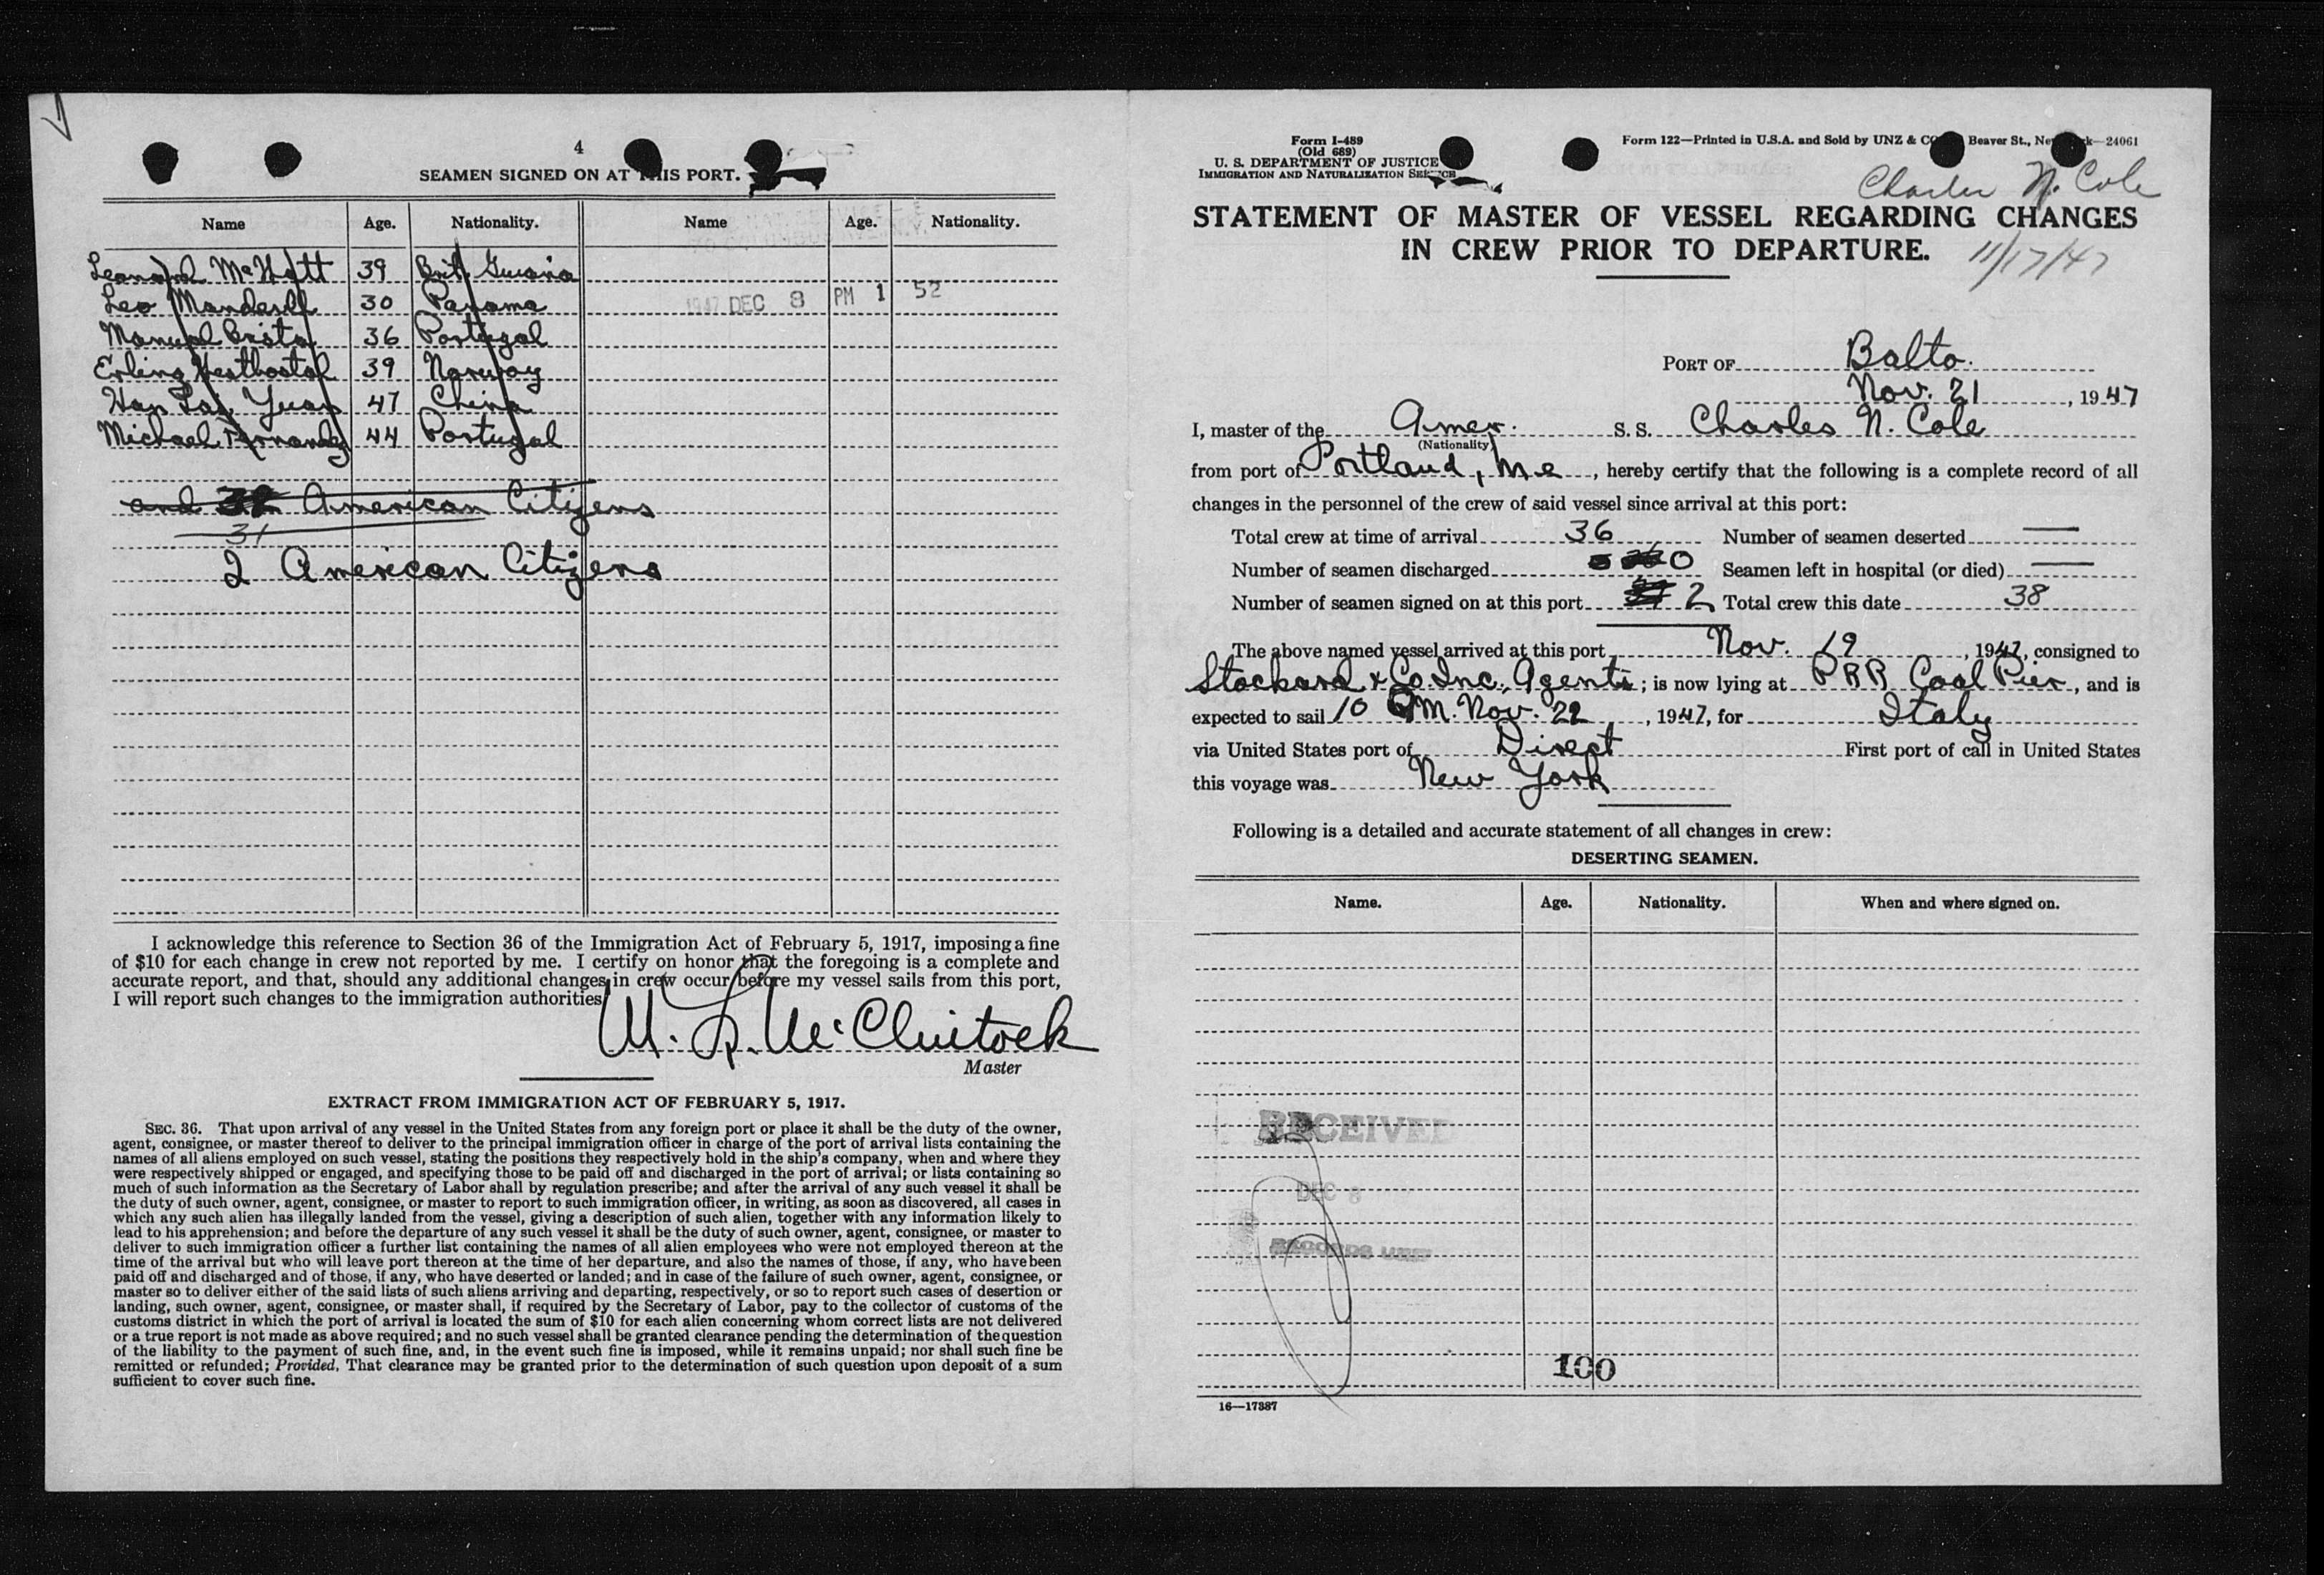 4
SEAMEN SIGNED ON AT THIS PORT.
Name Age. Nationality. Name Age. Nationality.
Leonard 39 Brit. Guiana
Leo 30 Panama
1947 DEC 8 PM 1 52
Manuel 36 Portugal
Erling 39 Norway
Yuan 47 China
Michael Fernandez 44 Portugal
and 32 American Citizens
31
2 American Citizens
I acknowledge this reference to Section 36 of the Immigration Act of February 5, 1917, imposing a fine
of $10 for each change in crew not reported by me. I certify on honor that the foregoing is a complete and
accurate report, and that, should any additional changes in crew occur before my vessel sails from this port,
I will report such changes to the immigration authorities.
W. L. McClintock
Master
EXTRACT FROM IMMIGRATION ACT OF FEBRUARY 5, 1917.
SEC. 36. That upon arrival of any vessel in the United States from any foreign port or place it shall be the duty of the owner,
agent, consignee, or master thereof to deliver to the principal immigration officer in charge of the port of arrival lists containing the
names of all aliens employed on such vessel, stating the positions they respectively hold in the ship's company, when and where they
were respectively shipped or engaged, and specifying those to be paid off and discharged in the port of arrival; or lists containing so
much of such information as the Secretary of Labor shall by regulation prescribe; and after the arrival of any such vessel it shall be
the duty of such owner, agent, consignee, or master to report to such immigration officer, in writing, as soon as discovered, all cases in
which any such alien has illegally landed from the vessel, giving a description of such alien, together with any information likely to
lead to his apprehension; and before the departure of any such vessel it shall be the duty of such owner, agent, consignee, or master to
deliver to such immigration officer a further list containing the names of all alien employees who were not employed thereon at the
time of the arrival but who will leave port thereon at the time of her departure, and also the names of those, if any, who have been
paid off and discharged and of those, if any, who have deserted or landed; and in case of the failure of such owner, agent, consignee, or
master so to deliver either of the said lists of such aliens arriving and departing, respectively, or so to report such cases of desertion or
landing, such owner, agent, consignee, or master shall, if required by the Secretary of Labor, pay to the collector of customs of the
customs district in which the port of arrival is located the sum of $10 for each alien concerning whom correct lists are not delivered
or a true report is not made as above required; and no such vessel shall be granted clearance pending the determination of the question
of the liability to the payment of such fine, and, in the event such fine is imposed, while it remains unpaid; nor shall such fine be
remitted or refunded; Provided, That clearance may be granted prior to the determination of such question upon deposit of a sum
sufficient to cover such fine.
Form I-489
(Old 689)
U. S. DEPARTMENT OF JUSTICE
IMMIGRATION AND NATURALIZATION SERVICE
Form 122—Printed in U.S.A. and Sold by UNZ & CO Beaver St., New York—24061
Charles N. Cole
STATEMENT OF MASTER OF VESSEL REGARDING CHANGES
IN CREW PRIOR TO DEPARTURE.
11/17/47
PORT OF Balto.
Nov. 21, 1947
I, master of the Amer. S. S. Charles N. Cole
(Nationality)
from port of Portland, Me, hereby certify that the following is a complete record of all
changes in the personnel of the crew of said vessel since arrival at this port:
Total crew at time of arrival 36 Number of seamen deserted —
Number of seamen discharged 0 Seamen left in hospital (or died) —
Number of seamen signed on at this port 2 Total crew this date 38
The above named vessel arrived at this port Nov. 19, 1947, consigned to
Stockard & Co. Inc. Agents; is now lying at PRR Coal Pier, and is
expected to sail 10 M. Nov. 22, 1947, for Italy
via United States port of Direct First port of call in United States
this voyage was New York
Following is a detailed and accurate statement of all changes in crew:
DESERTING SEAMEN.
Name. Age. Nationality. When and where signed on.
RECEIVED
DEC 8
RECORDS
100
16—17387